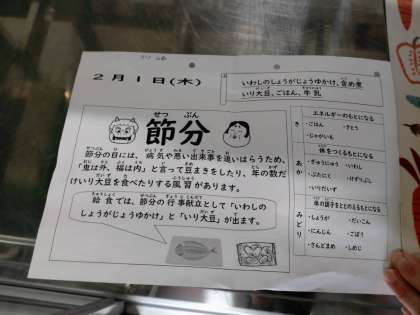 2月1日(木)
いわしのしょうがじょうゆかけ、含め煮
いり大豆、ごはん、牛乳
節分
せつ ぶん
節分の日には、病気や悪い出来事を追いはらうため、
「鬼は外、福は内」と言って豆まきをしたり、年の数だ
けいり大豆を食べたりする風習があります。
給食では、節分の行事献立として「いわしの
しょうがじょうゆかけ」と「いり大豆」が出ます。
き
エネルギーのもとになる
・ごはん ・さとう
・じゃがいも
あか
体をつくるもとになる
・ぎゅうにゅう ・いわし
・ぶたにく ・けずりぶし
・いりだいず
みどり
体の調子をととのえるもとになる
・しょうが ・だいこん
・にんじん ・ごぼう
・さんどまめ ・しめじ